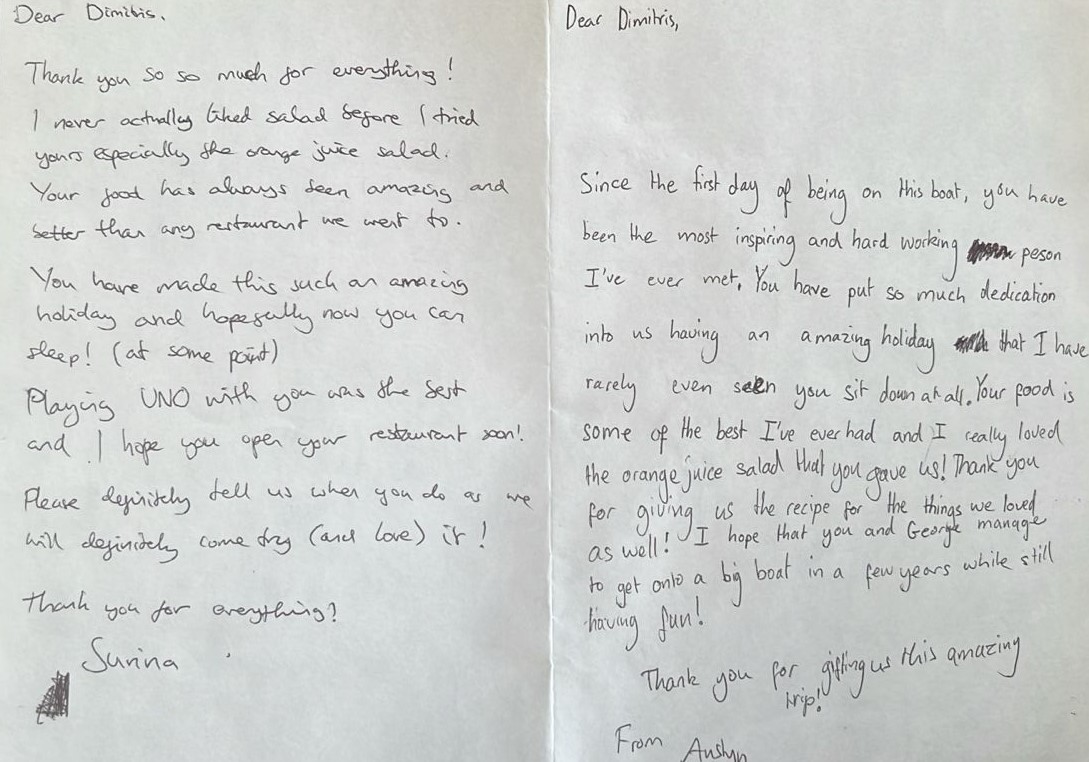 Dear Dimitris.
Thank you so so much for everything!
I never actually liked salad before I tried
yours especially the orange juice salad.
Your food has always been amazing and
better than any restaurant we went to.
You have made this such an amazing
holiday and hopefully now you can
sleep! (at some point)
Playing UNO with you was the best
and I hope you open your restaurant soon!
Please definitely tell us when you do as we
will definitely come try (and love) it!
Thank you for everything!
Surina
Dear Dimitris,
Since the first day of being on this boat, you have
been the most inspiring and hard working peson
I've ever met. You have put so much dedication
into us having an amazing holiday that I have
rarely even seen you sit down at all. Your food is
some of the best I've ever had and I really loved
the orange juice salad that you gave us! Thank you
for giving us the recipe for the things we loved
as well! I hope that you and George manage
to get onto a big boat in a few years while still
having fun!
Thank you for gifting us this amazing
trip!
From